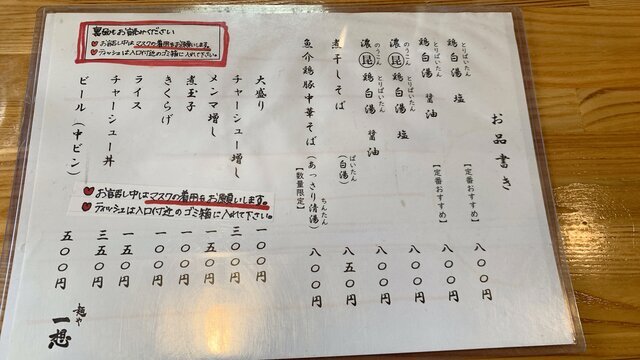 お品書き
とりぱいたん
鶏白湯 塩 【定番おすすめ】 八〇〇円
とりぱいたん
鶏白湯 醤油 【定番おすすめ】 八〇〇円
のうこん とりぱいたん
濃昆鶏白湯 塩 八〇〇円
のうこん とりぱいたん
濃昆鶏白湯 醤油 八〇〇円
ぱいたん
煮干しそば(白湯) 八五〇円
ちんたん
魚介鶏豚中華そば(あっさり清湯) 八〇〇円
【数量限定】
大盛り 一〇〇円
チャーシュー増し 三〇〇円
メンマ増し 一〇〇円
煮玉子 一〇〇円
きくらげ 一〇〇円
ライス 一五〇円
チャーシュー丼 三五〇円
ビール(中ビン) 五〇〇円
お会話し中はマスクの着用をお願いします。
ティッシュは入口付近のゴミ箱に入れて下さい。
麺や 一想